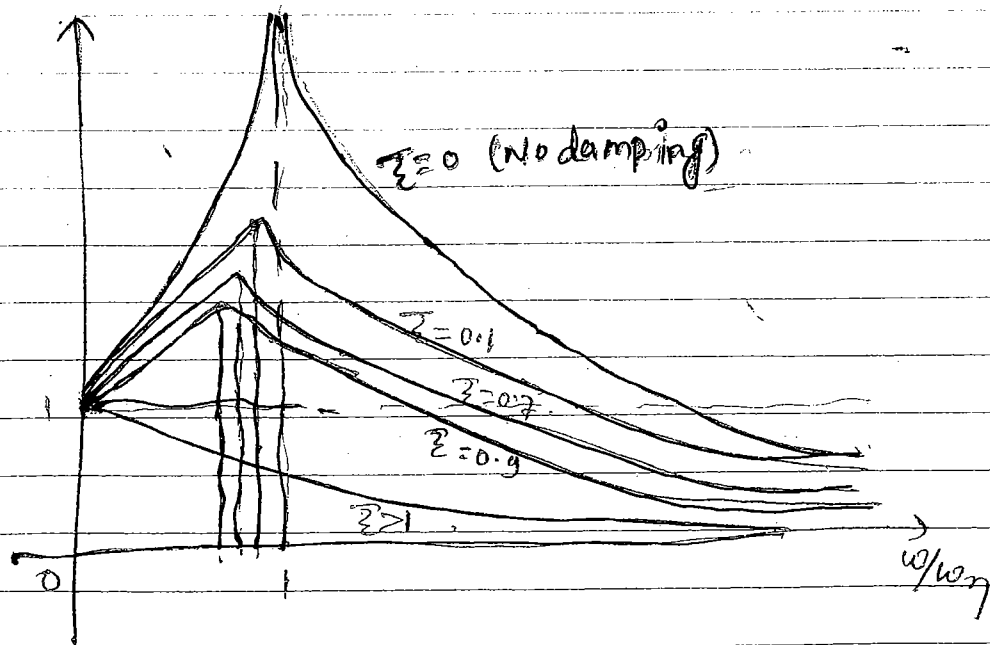 ξ=0 (No damping)
ξ=0.1
ξ=0.7
1
ξ=0.9
ξ>1
0
1
ω/ωη